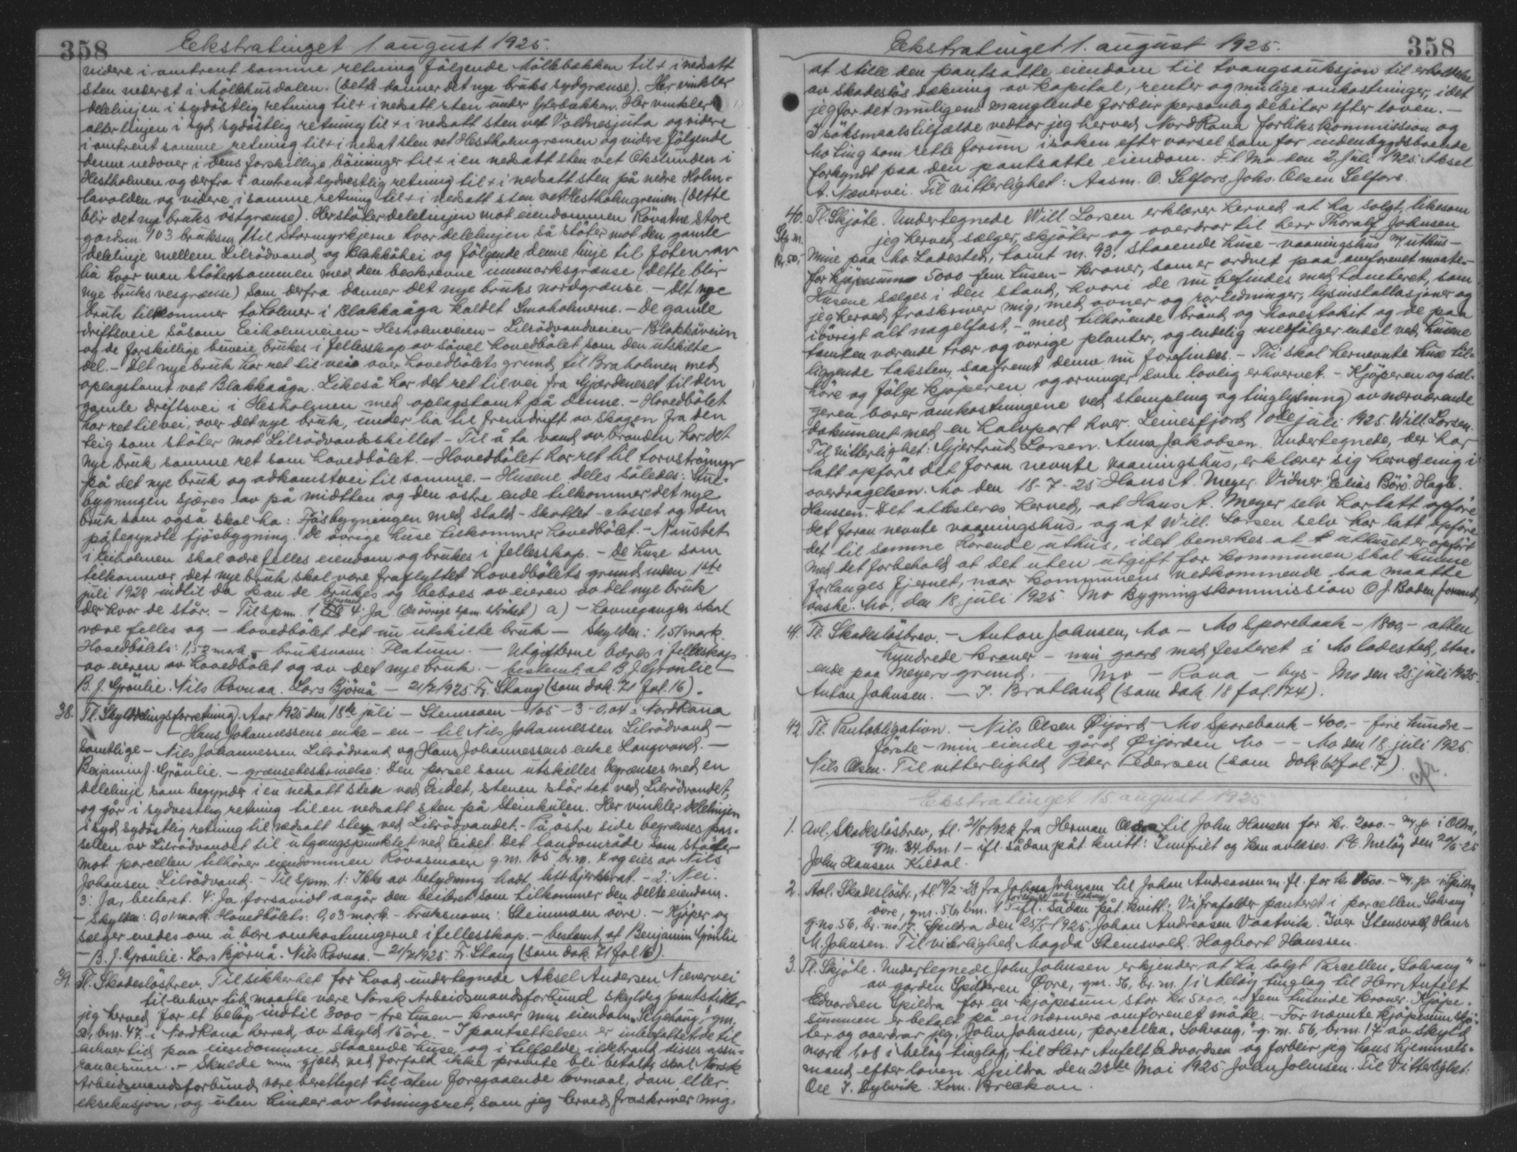 358
Ekstratinget 1 august 1925.
videre i omtrent samme retning følgende Mølbekken til + i nedsatt
sten nederst i Mølhusdalen. (dette danner det nye bruks sydgrænse). Her vinkler
delelinjen i sydøstlig retning til + i nedsatt sten under Ytterbakken. Her vinkler
linjen i syd sydøstlig retning til + i nedsatt sten vet og videre
i omtrent samme retning til + i nedsat sten vet Hestholmgrenen og videre følgende
denne nedover i dens forskellige bøininger til + i en nedsatt sten vet Oksslunden i
Hestholmen og derfra i omtrent sydvestlig retning til + i nedsatt sten på nedre Holm-
tavolden og videre i samme retning til + i nedsatt sten vet Hestholmgrenen (dette
blir det nye bruks østgrænse). Her støter delelinjen mot eiendommen Røvatne store
gården 103 bruksnr. 1 til Stormyrkjerne hvor delelinjen så støter mot den gamle
delelinje mellem Lilrødvand og Blakkåhei og følgende denne linje til foten av
lia hvor man støter sammen med den beskrevne utmarksgrænse (dette blir
nye bruks vesgrænse) som derfra danner det nye bruks nordgrænse. — Det nye
bruk tilkommer to holmer i Blakkaåga kaldet Smaholmerne. — De gamle
driftsveie såsom Eiholmveien - Hestholmveien - Lilrødvandveien - Blakkåveien
og de forskillige buveie brukes i fellesskap av såvel hovedbølet som den utskilte
del. — Det nye bruk har ret til veie over hovedbølets grund til Braholmen med
oplagstomt vet Blakkaåga. Likeså har det ret til vei fra Gjerdeneset til den
gamle driftsvei i Hesholmen med oplagstomt på denne. — Hovedbølet
har ret til vei, over det nye bruk, under lia til fremdrift av skogen fra den
teig som støter mot Lilrødvandsskillet — Til å ta vand av brønden har det
nye bruk samme ret som hovedbølet. — Hovedbølet har ret til torvstrømyr
på det nye bruk og adkomstvei til samme. — Husene deles således:
bygningen sjøres av på midtten og den østre ende tilkommer det nye
bruk som også skal ha: Fjøsbygningen med stald - skottet - closet og den
påbegyndte fjøsbygning. De øvrige huse tilkommer hovedbølet. — Naustet
i Eiholmen skal være felles eiendom og brukes i fellesskap. — De huse som
tilkommer det nye bruk skal være fraflyttet hovedbølets grund inden 1ste
juli 1928 indtil da kan de brukes og beboes av eieren av det nye bruk
der hvor de står. — Til spm. 1 4 Ja (de øvrige spm. strøket) a) — havnegangen skal
være felles og — hovedbølet det nu utskilte bruk — Skylden: 1,51 mark.
Hovedbølets: 1,52 mark - bruksnavn: Platum. — Utgifterne bæres i fellesskap
av eieren av hovedbølet og av det nye bruk. — bestemt at B. J. Grønlie —
B. J. Grønlie. Nils Rovnaa. Lars Bjørnå — 21/7 1925 Fr. Stang (som dok. 71 fol. 16).
38. Tl. Skyldelingsforretning. Aar 1925 den 18de juli — Steinmoen — 105 - 3 - 0,04 i Nordrana
Hans Johannessens enke — en — til Nils Johannessen Lilrødvand —
samtlige — Nils Johannessen Lilrødvand og Hans Johannessens enke Langvand. —
Benjamin J. Grønlie. — grænsebeskrivelse: Den parsel som utskilles begrænses med en
delelinje som begynder i en nedsatt sten ved Eidet, stenen står tet ved Lilrødvandet,
og går i sydvestlig retning til en nedsatt sten på Steinkulen. Her vinkler delelinjen
i syd sydøstlig retning til nedsatt sten ved Lilrødvandet. — På østre side begrænses par-
sellen av Lilrødvandet til utgangspunktet ved Eidet. Det landområde som støter
mot parcellen tilhører eiendommen Rovasmoen g.nr. 105 br.nr. 1 og eies av Nils
Johansen Lilrødvand. — Til spm. 1: Ikke av betydning hadt littbjerkekrat. — 2: Nei.
3: Ja, beiteret. 4: Ja, forsavidt angår den beiteret som tilkommer den delte eiendom.
— Skylden: 0,01 mark. Hovedbølets: 0,03 mark. — bruksnavn: Steinmoen øvre. — Kjøper og
sælger enedes om å bære omkostningerne i fellesskap. — bestemt at Benjamin Grønlie
— B. J. Grønlie. Lars Bjørnå. Nils Rovnaa. — 21/7 1925. Fr. Stang (som dok. 71 fol. 16).
39. Tl. Skadesløsbrev. Til sikkerhet for hvad undertegnede Aksel Andersen Nævernei
til enhver tid maatte være Norsk Arbeidsmandsforbund skyldig pantstiller
jeg herved for et beløp indtil 3000 — tre tusen — kroner min eiendom „Seljehaug“ gnr.
br.nr. 47 i Nordrana herred, av skyld 15 øre. — I pantsettelsen er indbefattet de til
enhver tid paa eiendommen staaende huse og i tilfælde ildebrand disses assu-
rancesum. — Skulde min gjæld ved forfald ikke promte bli betalt, skal Norsk
Arbeidsmandsforbund være berettiget til uten foregaaende lovmaal, dom eller
eksekusjon, og uten hinder av løsningsret, som jeg herved fraskriver mig,
Ekstratinget 1. august 1925.
358
at stille den pantsatte eiendom til tvangsauksjon til erholdelse
av skadesløs dækning av kapital, renter og mulige omkostninger, idet
jeg for det muligens manglende forblir personlig debitor efter loven. —
I søksmaalstilfælde vedtar jeg herved Nordrana forlikskommission og
Mo ting som rette forum i saken efter varsel som for indenbygdsboende
forkyndt paa den pantsatte eiendom. P.t. Mo den 2. juli 1925 Aksel
A. Nævernei. Til vitterlighet: Aasm. O. Selfors. Johs. Olsen Selfors.
40. Tl. Skjøte. Undertegnede Will Larsen erklærer herved at ha solgt, likesom
jeg herved sælger, skjøter og overdrar til herr Thoralf Johansen
mine paa Mo Ladested, tomt nr. 93, staaende huse — vaaningshus m/ uthus —
for kjøpesum 5000 — fem tusen — kroner, som er ordnet paa omforenet maate —
Husene sælges i den stand, hvori de nu befindes med tomteret, som
jeg herved fraskriver mig, med ovner og rørledninger, lysinstallasjoner og
iøvrigt alt nagelfast, — med tilhørende brand og hovestokst og de paa
tomten værende trær og øvrige planter, og endelig medfølger endel ved husene
liggende taksten, saafremt denne nu forefindes. — Thi skal hernevnte huse til-
høre og følge kjøperen og arvinger som lovlig erhvervet. — Kjøperen og sæl-
geren bærer omkostningene ved stempling og tinglysning av nærværende
dokument med en halvpart hver. Leinesfjord 10de juli 1925. Will Larsen.
Til vitterlighet: Gjertrud Larsen. Anna Jakobsen. Undertegnede, der har
latt opføre det foran nevnte vaaningshus, erklærer sig herved enig i
overdragelsen. Mo den 18-7-25 Hans A. Meyer. Vidner: Elias Børø. Hagb.
Hanssen. Det attesteres herved, at Hans A. Meyer selv har latt opføre
det foran nevnte vaaningshus og at Will. Larsen selv har latt opføre
det til samme hørende uthus, idet bemerkes at uthuset er opført
med det forbehold at det uten utgift for kommunen skal kunne
forlanges fjernet, naar kommunens vedkommende saa maatte
ønske. Mo, den 18 juli 1925 Mo Bygningskommission O J Boden formand
41. Tl. Skadesløsbrev. — Anton Johnsen, Mo — Mo Sparebank — 1800,- atten
hundrede kroner — min gaard med festeret i Mo ladested, staa-
ende paa Meyers grund. — Mo — Rana — bys — Mo den 25 juli 1925.
Anton Johnsen. — I. Bratland (som dok 18 fol. 174).
42. Tl. Pantobligation. — Nils Olsen Øijord — Mo Sparebank — 400,- fire hundre —
første — min eiende gård Øijorden Mo — Mo den 18 juli 1925
Nils Olsen. Til vitterlighed Peder Pedersen (som dok 64 fol. 7).
Ekstratinget 15 august 1925.
1. Avl. Skadesløsbrev, tl. fra Herman til John Hansen for kr. 2000.- i Oldra,
gnr. 34 br. 1 — ifl. sådan påt. kvitt: Innfridt og kan avlæses.
John Hansen Kilsal.
2. Avl. Skadesløsbr., tl. fra Johan Johnsen til Johan Andreassen m. fl. for kr. i Spildra
øvre, gnr. 56, br. nr. 1 ifl. sådan påt. kvitt: Vi frafalder pantret i porcellen „Solvang“
g-nr 56, br. nr. 17. Spildra den 25/5 1925. Johan Andreasen Vaatvik. Iver Stensvold. Hans
M. Johnsen. Til vitterlighed: Magda Stensvold. Hagbart Hanssen.
3. Tl. Skjøte. Undertegnede John Johnsen erkjender at ha solgt Parcellen „Solvang“
av gården Spilderen Øvre, gnr. 56, br. nr. 1 i Meløy tinglag til Herr Anfelt
Edvardsen Spildra for en kjøpesum stor kr. 5000.- fem tusende kroner. Kjøpe-
summen er betalt på en nærmere omforenet måte. — For nævnte kjøpesum skjø-
ter og overdrar jeg, John Johnsen, porcellen „Solvang“ g-nr. 56, br.nr. 17 av skyld
mark i Meløy tinglag, til Herr Anfelt Edvardsen og forblir jeg hans hjemmels-
mand efter loven. Spildra den 25de Mai 1925. John Johnsen. Til Vitterlighet:
Ole J. Dylvik. Kon. Breckan.